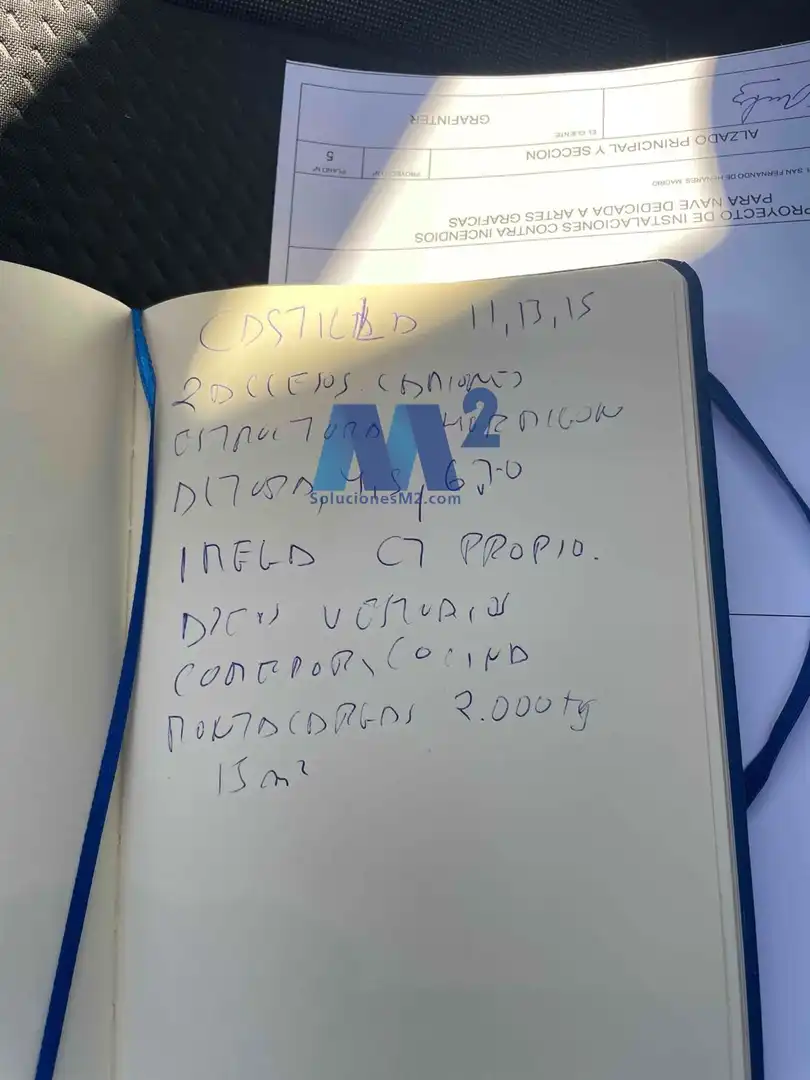 CASTILLA 11, 13, 15
2 ACCESOS CAMIONES
ESTRUCTURA HORMIGON
ALTURA, 4,5, 6,70
1 MEGA CT PROPIO.
VESTUARIOS
COMEDOR, COCINA
MONTACARGAS 2.000 kg
15 m²
M²
SolucionesM2.com
GRAFINTER
EL CLIENTE
ALZADO PRINCIPAL Y SECCION
PLANO Nº
5
PROYECTO Nº
SAN FERNANDO DE HENARES. MADRID
PROYECTO DE INSTALACIONES CONTRA INCENDIOS
PARA NAVE DEDICADA A ARTES GRAFICAS